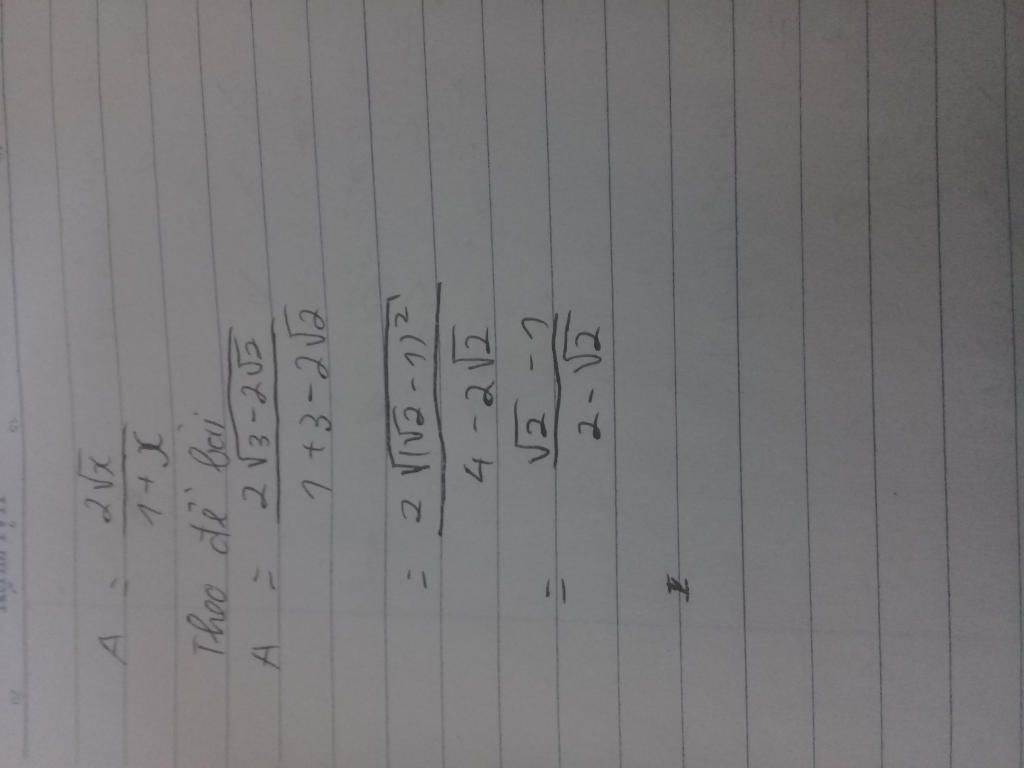 A = 2√x / 1 + x
Theo đề bài
A = 2√3 - 2√2 / 1 + 3 - 2√2
= 2√(√2 - 1)² / 4 - 2√2
= √2 - 1 / 2 - √2